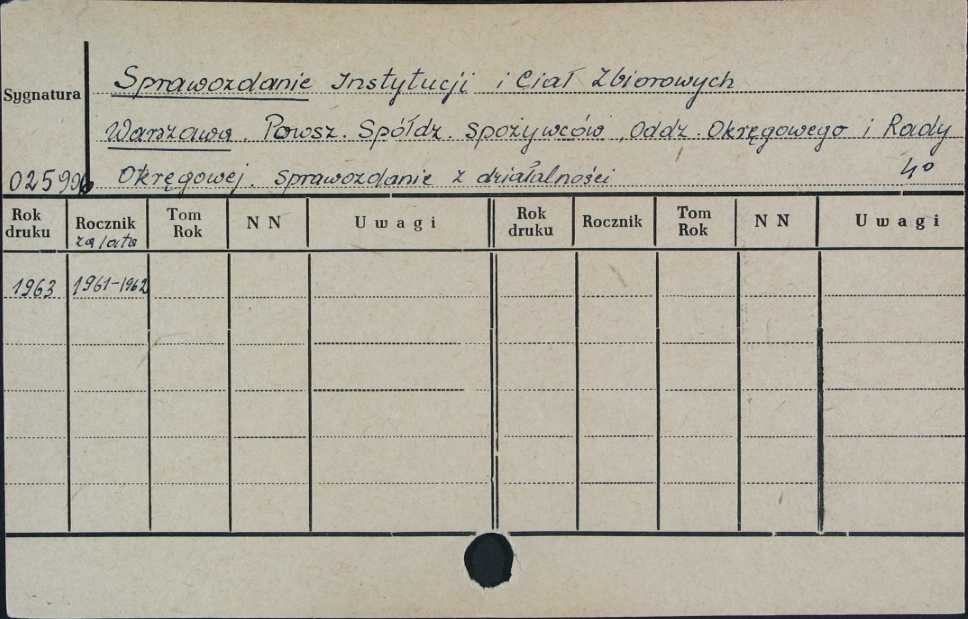 Sprawozdanie Instytucji i Ciał Zbiorowych
Sygnatura
Warszawa. Powsz. Spółdz. Spożywców, Oddz. Okręgowego i Rady
025996 Okręgowej. Sprawozdanie z działalności 4°
Rok druku Rocznik za lata Tom Rok N N Uwagi Rok druku Rocznik Tom Rok N N Uwagi
1963 1961-1962